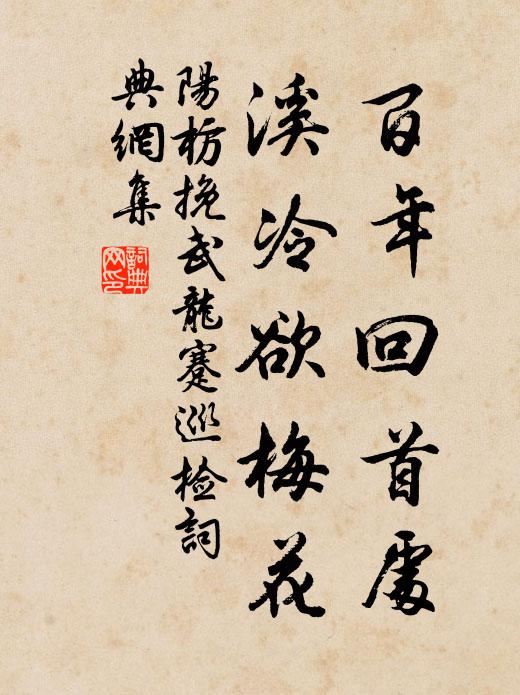 百年回首處
溪冷欲梅花
陽枋挽武龍蹇巡檢詞
典網集
詞典網印